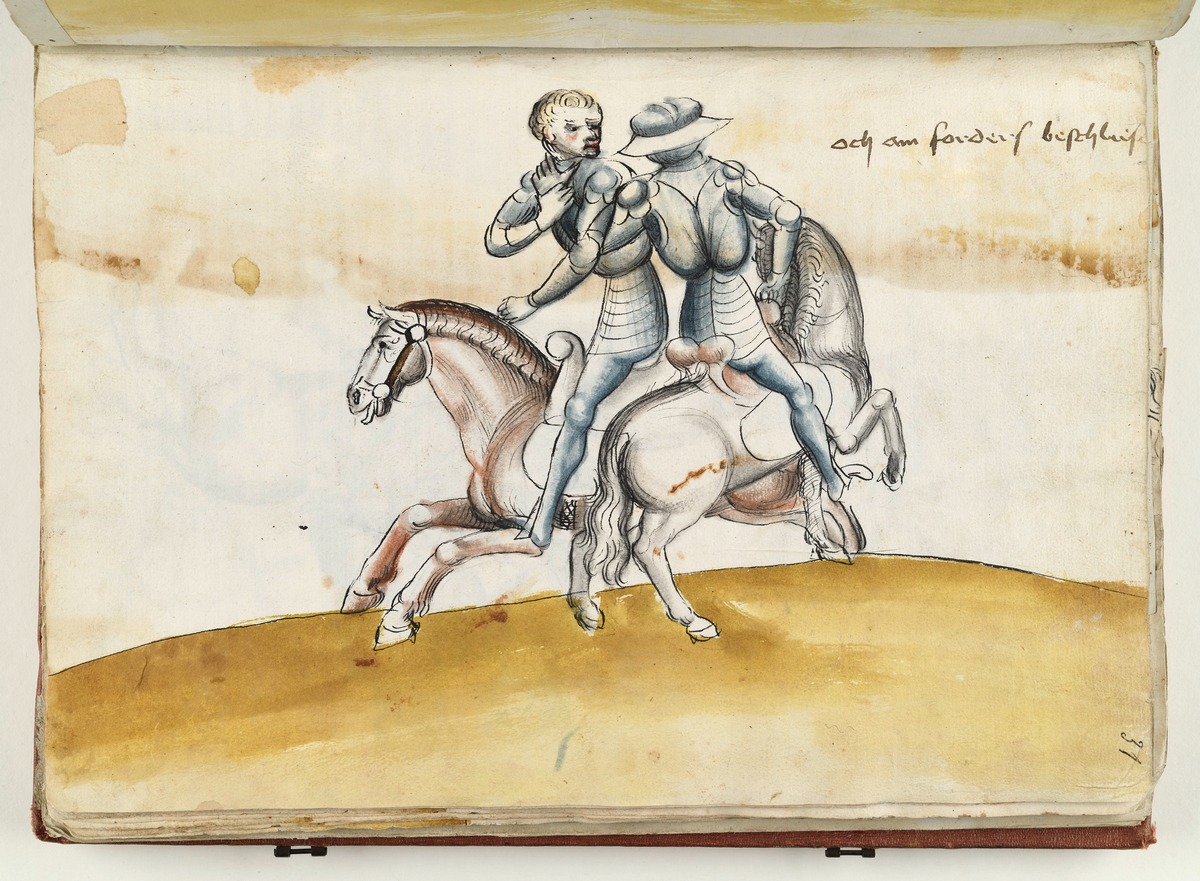 och am forders beschlies
31